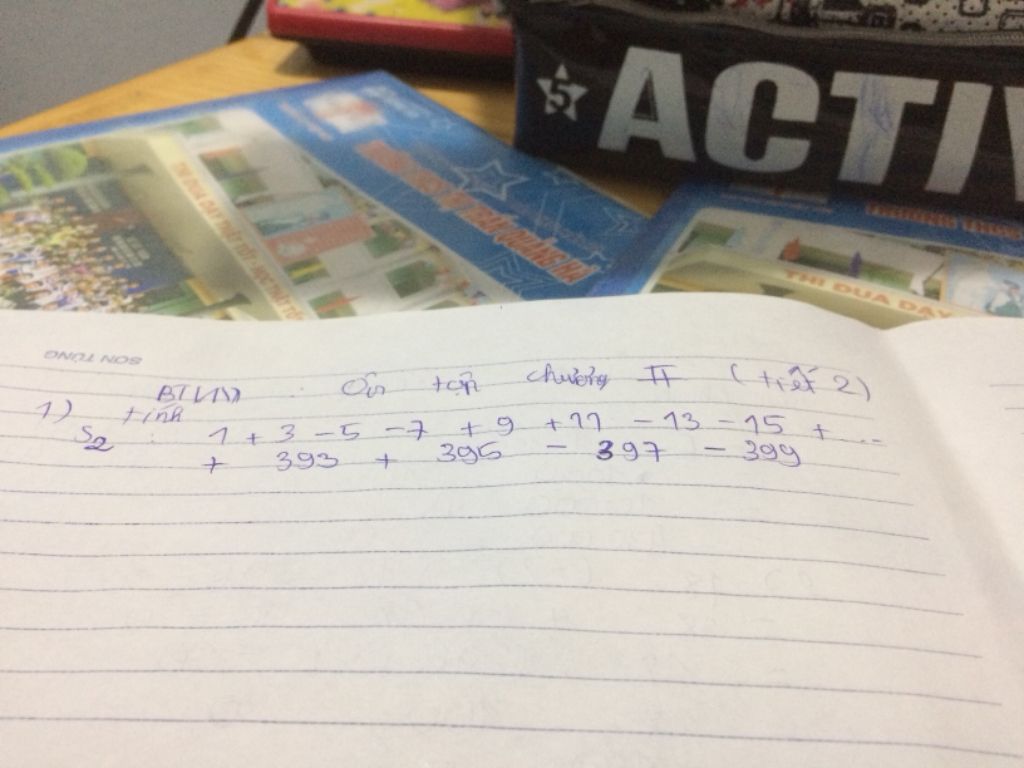 5
ACTIV
TRƯỜNG THCS
THI ĐUA DẠY
SON TUNG
BTVN : Ôn tập chương II (tiết 2)
1) tính
S2 : 1 + 3 - 5 - 7 + 9 + 11 - 13 - 15 + ...
+ 393 + 395 - 397 - 399